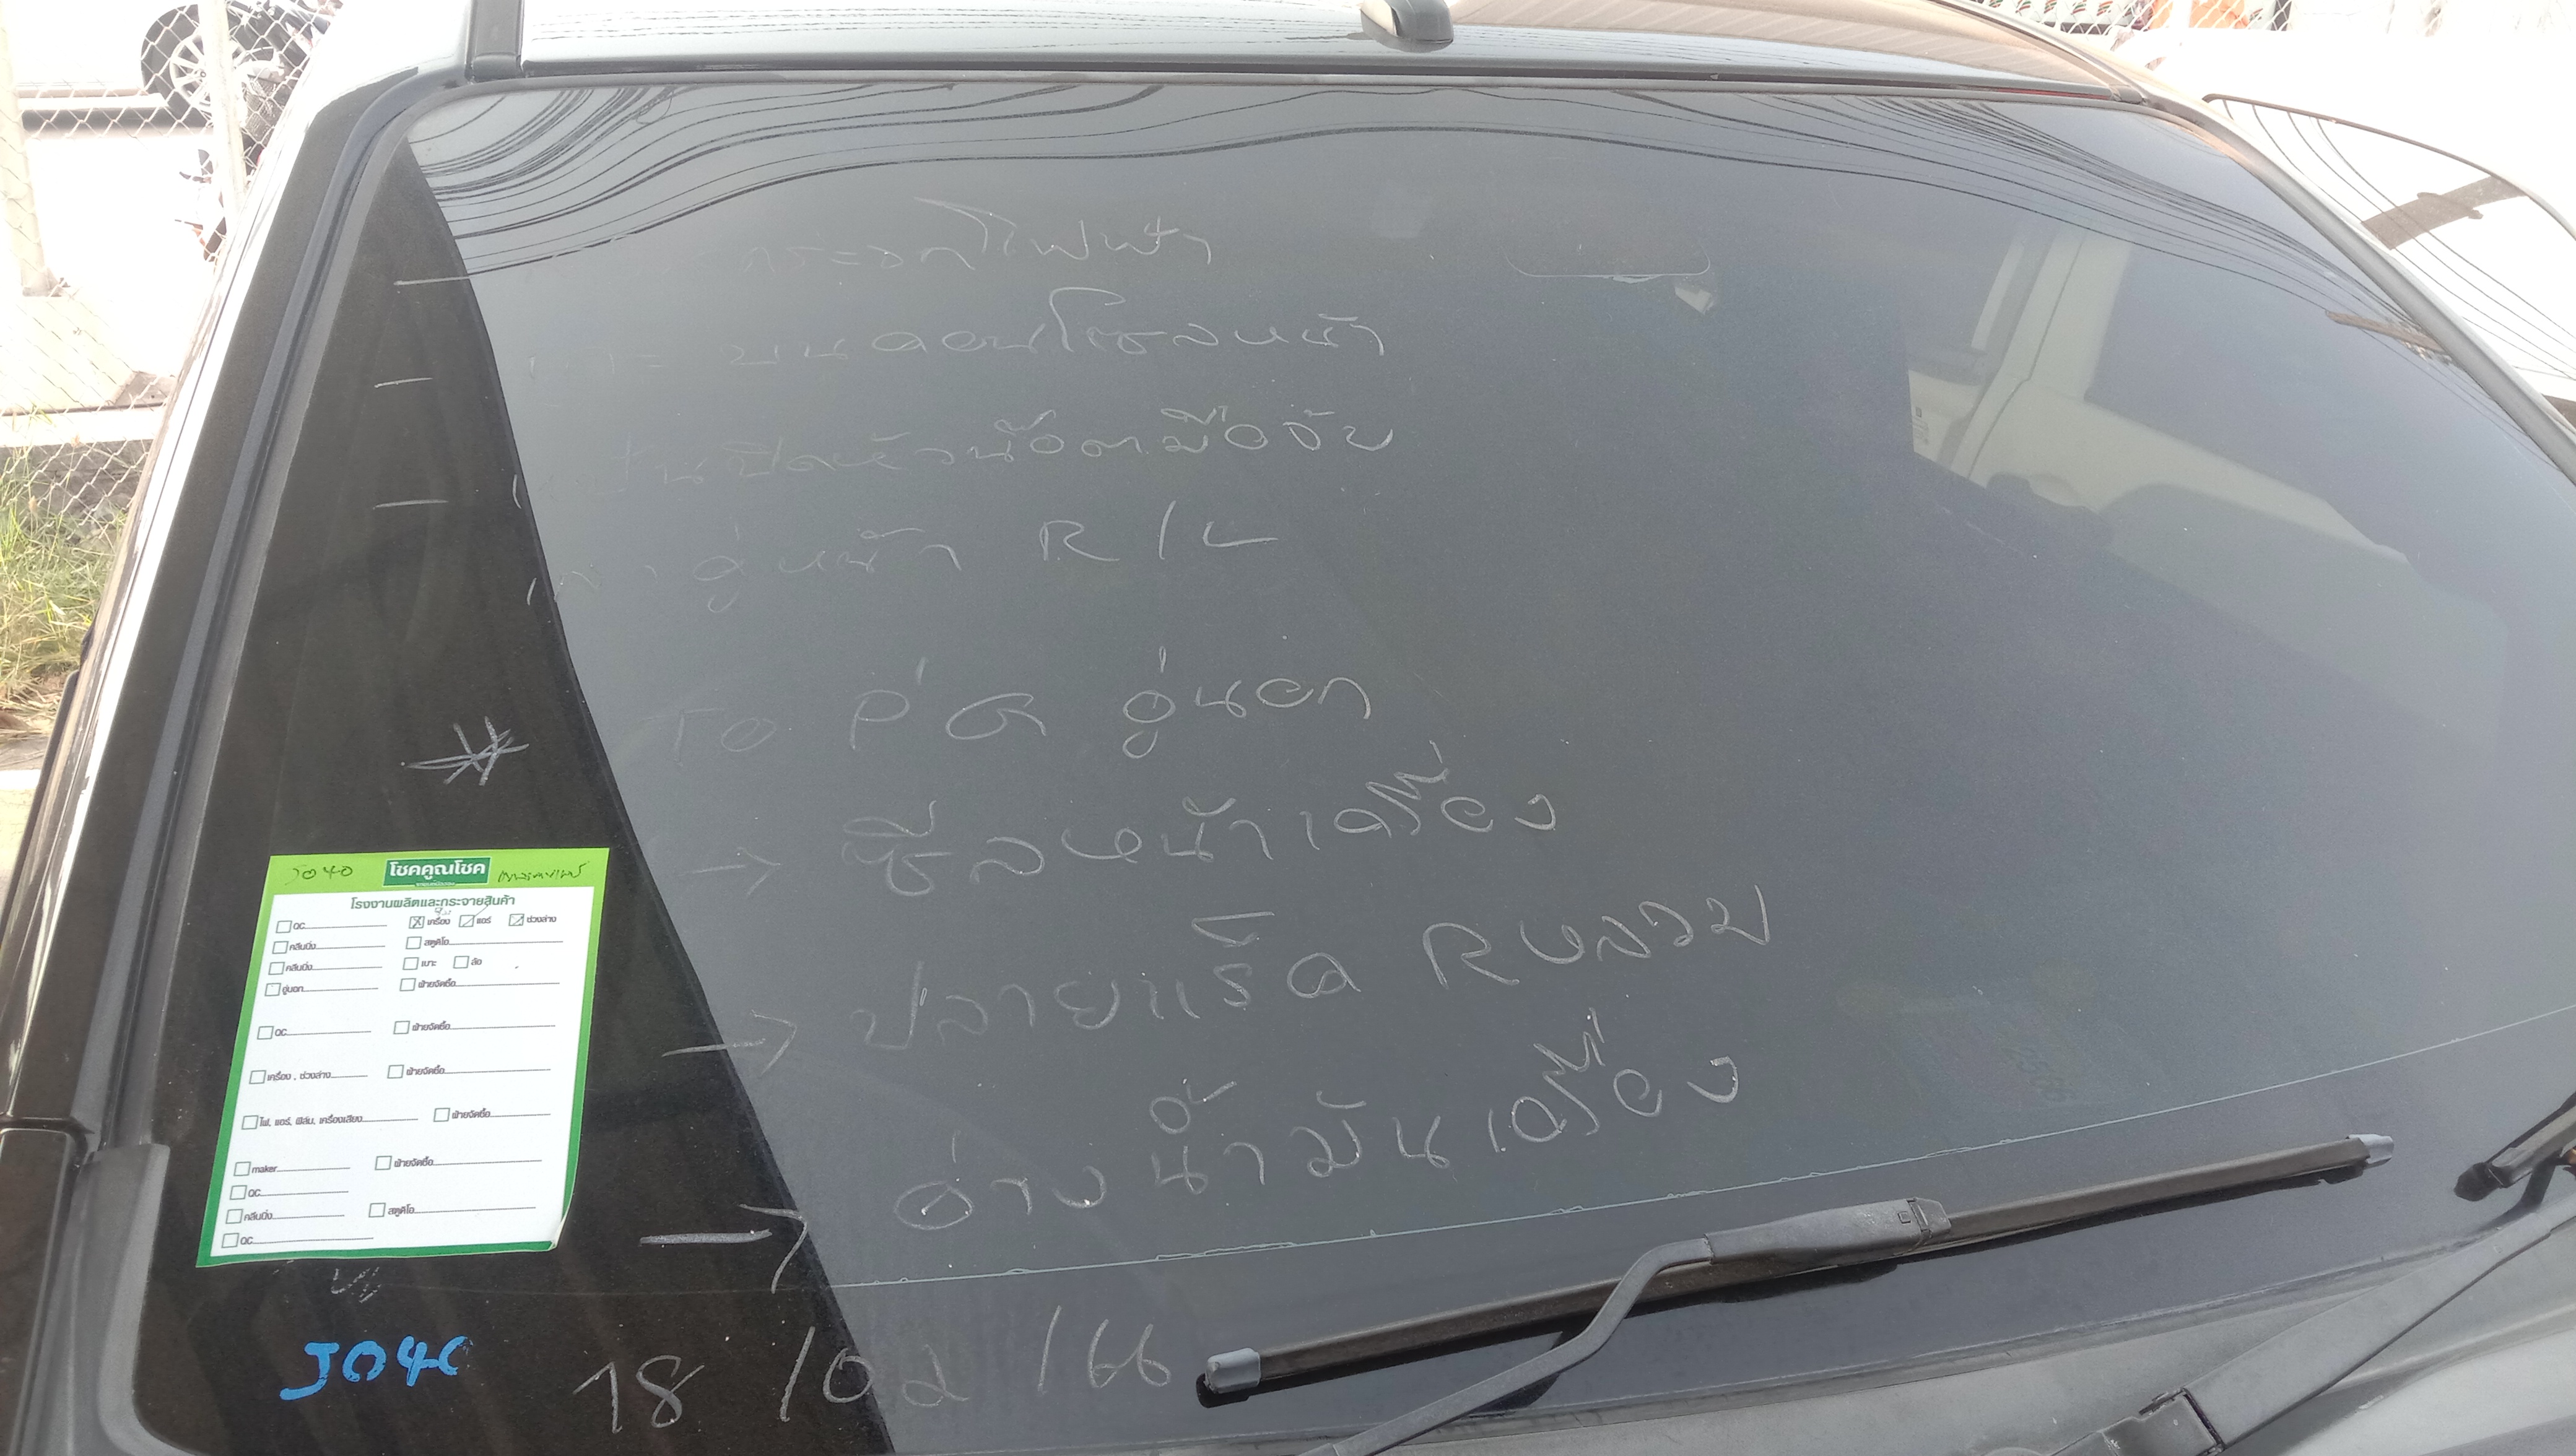 กระจกไฟฟ้า
บนคอนโซลหน้า
ปิดหัวน็อตมือจับ
คู่หน้า R/L
TO P'Q อู่นอก
→ ซีลหน้าเครื่อง
→ ปลายแร็ค R หลวม
→ อ่างน้ำมันเครื่อง
18/02/66
J040
J040 โชคคูณโชค
โรงงานผลิตและกระจายสินค้า
QC เครื่อง แอร์ ช่วงล่าง
คลีนนิ่ง สตูดิโอ
คลีนนิ่ง เบาะ ล้อ
อู่นอก ฝ่ายจัดซื้อ
QC ฝ่ายจัดซื้อ
เครื่อง, ช่วงล่าง ฝ่ายจัดซื้อ
ไฟ, แอร์, ฟิล์ม, เครื่องเสียง ฝ่ายจัดซื้อ
maker ฝ่ายจัดซื้อ
QC
คลีนนิ่ง สตูดิโอ
QC